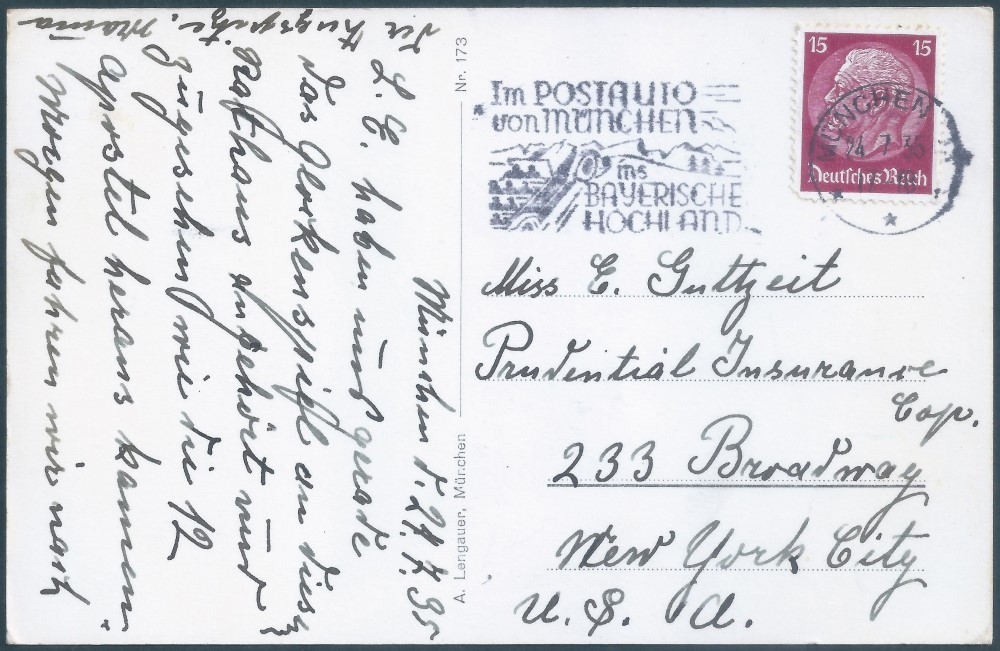 München d. 24.7.35
L. E. haben uns gerade
das Glockenspiel an diesem
Rathaus angehört und
zugesehen wie die 12
Apostel heraus kamen.
Morgen fahren wir nach
der Zugspitze. Mama
A. Lengauer, München Nr. 173
Im POSTAUTO
von MÜNCHEN
ins
BAYERISCHE
HOCHLAND
15 15
Deutsches Reich
MÜNCHEN
24.7.35
Miss E. Guttzeit
Prudential Insurance
Cop.
233 Broadway
New York City
U. S. A.